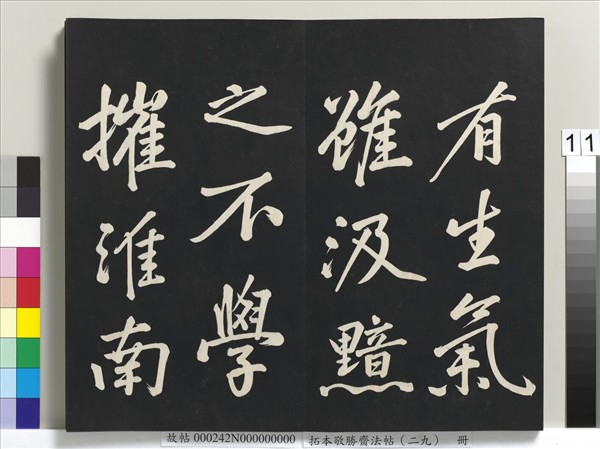 有生氣
雖汲黯
之不學
摧淮南
11
故帖000242N000000000 拓本敬勝齋法帖(二九) 冊